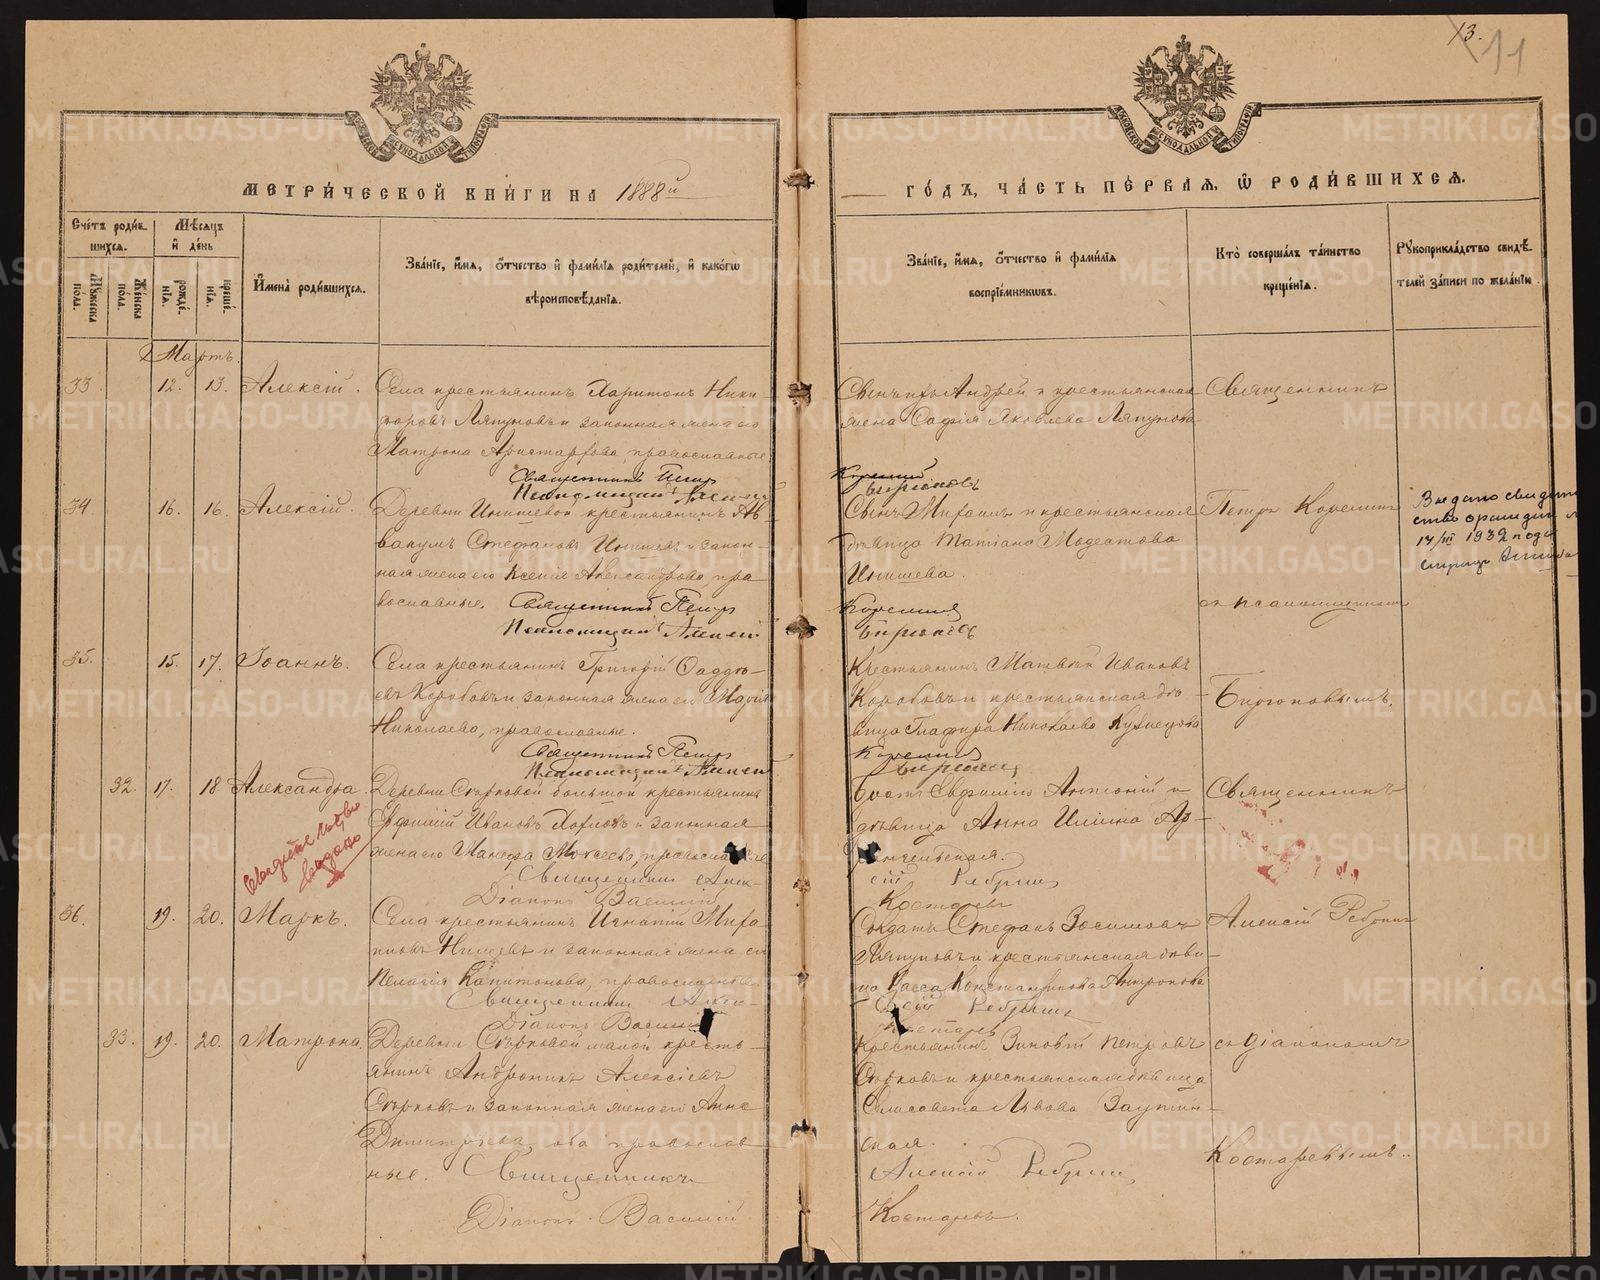 13.
11
МЕТРИ́ЧЕСКОЙ КНИ́ГИ НА 1888й
ГО́ДЪ, ЧА́СТЬ ПЕ́РВАЯ, Ѿ РОДИ́ВШИХСЯ.
Сче́тъ роди́в-
шихся.
Му́жеска пола.
Же́нска пола.
Мѣ́сяцъ
и҆ де́нь
рожде́-
нїя.
креще́-
нїя.
И҆мена̀ роди́вшихся.
Зва́нїе, и҆́мя, ѻ҆́тчество и҆ фами́лїя роди́телей, и҆ како́гѡ
вѣроисповѣ́данїя.
Зва́нїе, и҆́мя, ѻ҆́тчество и҆ фами́лїя
воспрїе́мникѡвъ.
Кто̀ соверша́лъ та́инство
креще́нїя.
Рꙋкоприкла́дство свидѣ́-
телей за́писи по жела́нїю.
Мартъ.
33 12. 13. Алексій.
Села крестьянинъ Харитонъ Ники-
форовъ Ляпуновъ и законная жена его
Матрона Аристархова, православные.
Священникъ Петръ
Сынъ ихъ Андрей и крестьянская
жена Софія Яковлева Ляпунова
Священникъ
34 16. 16. Алексій.
Деревни Инишевой крестьянинъ Ав-
вакумъ Стефановъ Инишевъ и закон-
ная жена его Ксенія Александрова, пра-
вославные. Священникъ Петръ
Псаломщикъ Алексій
Сынъ Михаилъ и крестьянская
дѣвица Татіана Модестова
Инишева.
Корелинъ
Бирюковъ
Петръ Корелинъ
съ псаломщикомъ
Выдано свидетель
ство
17/III 1932 года
35. 15. 17. Іоаннъ.
Села крестьянинъ Григорій Фадде-
евъ Коробовъ и законная жена его Марія
Николаева, православные.
Священникъ Петръ
Псаломщикъ Алексій
Крестьянинъ Матвѣй Ивановъ
Коробовъ и крестьянская дѣ-
вица Глафира Николаева Кузнецова
Бирюковымъ.
32. 17. 18 Александра.
Свидетельство
выдано
Деревни Сѣрковой большой крестьянинъ
Евфимій Ивановъ и законная
жена его Мокеева, православные
Священникъ Алек-
Діаконъ Василій
Братъ Евфимія Антоній и
дѣвица Анна Ильина Ар-
хангельская.
сій Ребринъ
Костаревъ
Священникъ
36. 19. 20. Маркъ.
Села крестьянинъ Игнатій
и законная жена его
Пелагія Капитонова, православные
Священникъ Алек-
Діаконъ Василій
Солдатъ Стефанъ Зосимовъ
Ляпуновъ и крестьянская дѣви-
ца Васса Константинова Антропова
сій Ребринъ
Костаревъ
Алексій Ребринъ
33. 19. 20. Матрона.
Деревни Сѣрковой малой кресть-
янинъ Андроникъ Алексіевъ
Сѣрковъ и законная жена его Анна
Димитріева, оба православ-
ные. Священникъ
Діаконъ Василій
Крестьянинъ Зиновій Петровъ
Сѣрковъ и крестьянская дѣвица
Елисавета Львова
ская.
Алексій Ребринъ
Костаревъ.
съ діакономъ
Костаревымъ.
METRIKI.GASO-URAL.RU